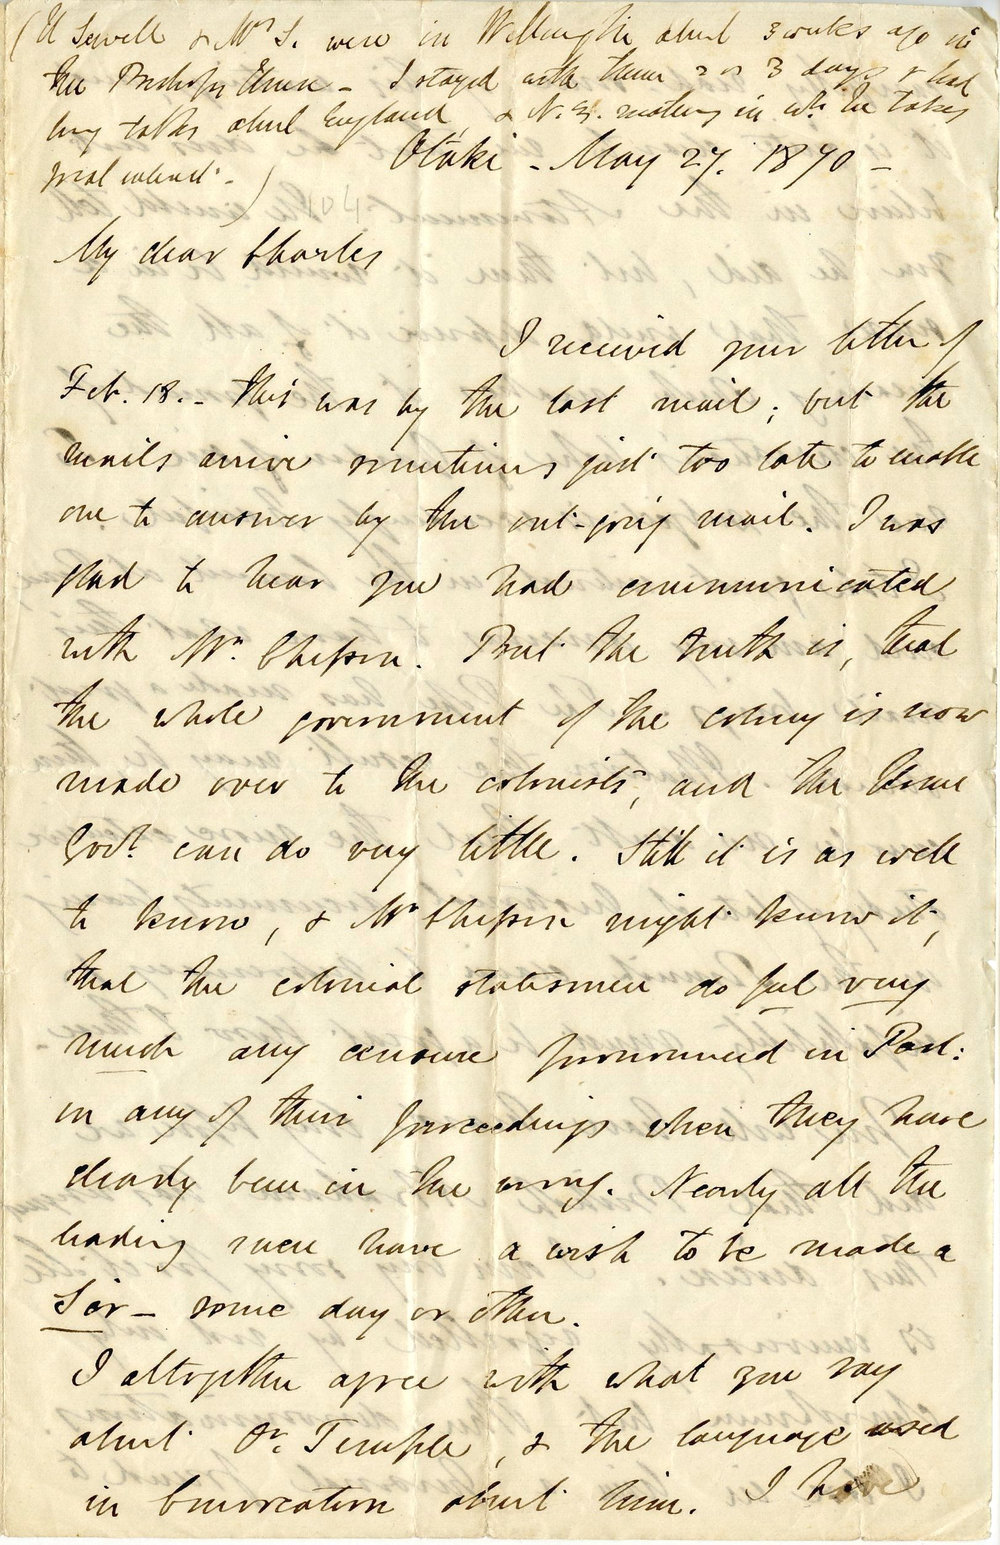 (H Sewell & Mrs S. were in Wellington about 3 weeks ago in
the Bishop's House - I stayed with them 2 or 3 days & had
long talks about England, & N.Z. matters in wh. he takes
great interest. - )
Otaki - May 27. 1870 -
104
My dear Charles
I received your letter of
Feb. 18. - this was by the last mail; but the
mails arrive sometimes just too late to enable
one to answer by the out-going mail. I was
glad to hear you had communicated
with Mr. Chesson. But the truth is, that
the whole government of the colony is now
made over to the colonists, and the Home
Govt. can do very little. Still it is as well
to know, & Mr Chesson might know it,
that the colonial statesmen do feel very
much any censure pronounced in Parl:
on any of their proceedings when they have
clearly been in the wrong. Nearly all the
leading men have a wish to be made a
Sir - some day or other.
I altogether agree with what you say
about Dr. Temple, & the language used
in Convocation about him. I have